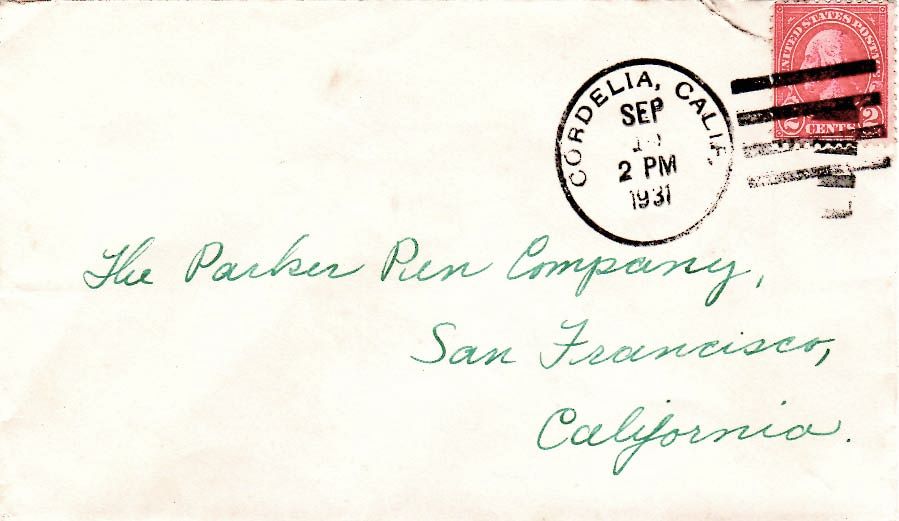 UNITED STATES POSTAGE
2 CENTS 2
CORDELIA, CALIF.
SEP
2 PM
1931
The Parker Pen Company,
San Francisco,
California.